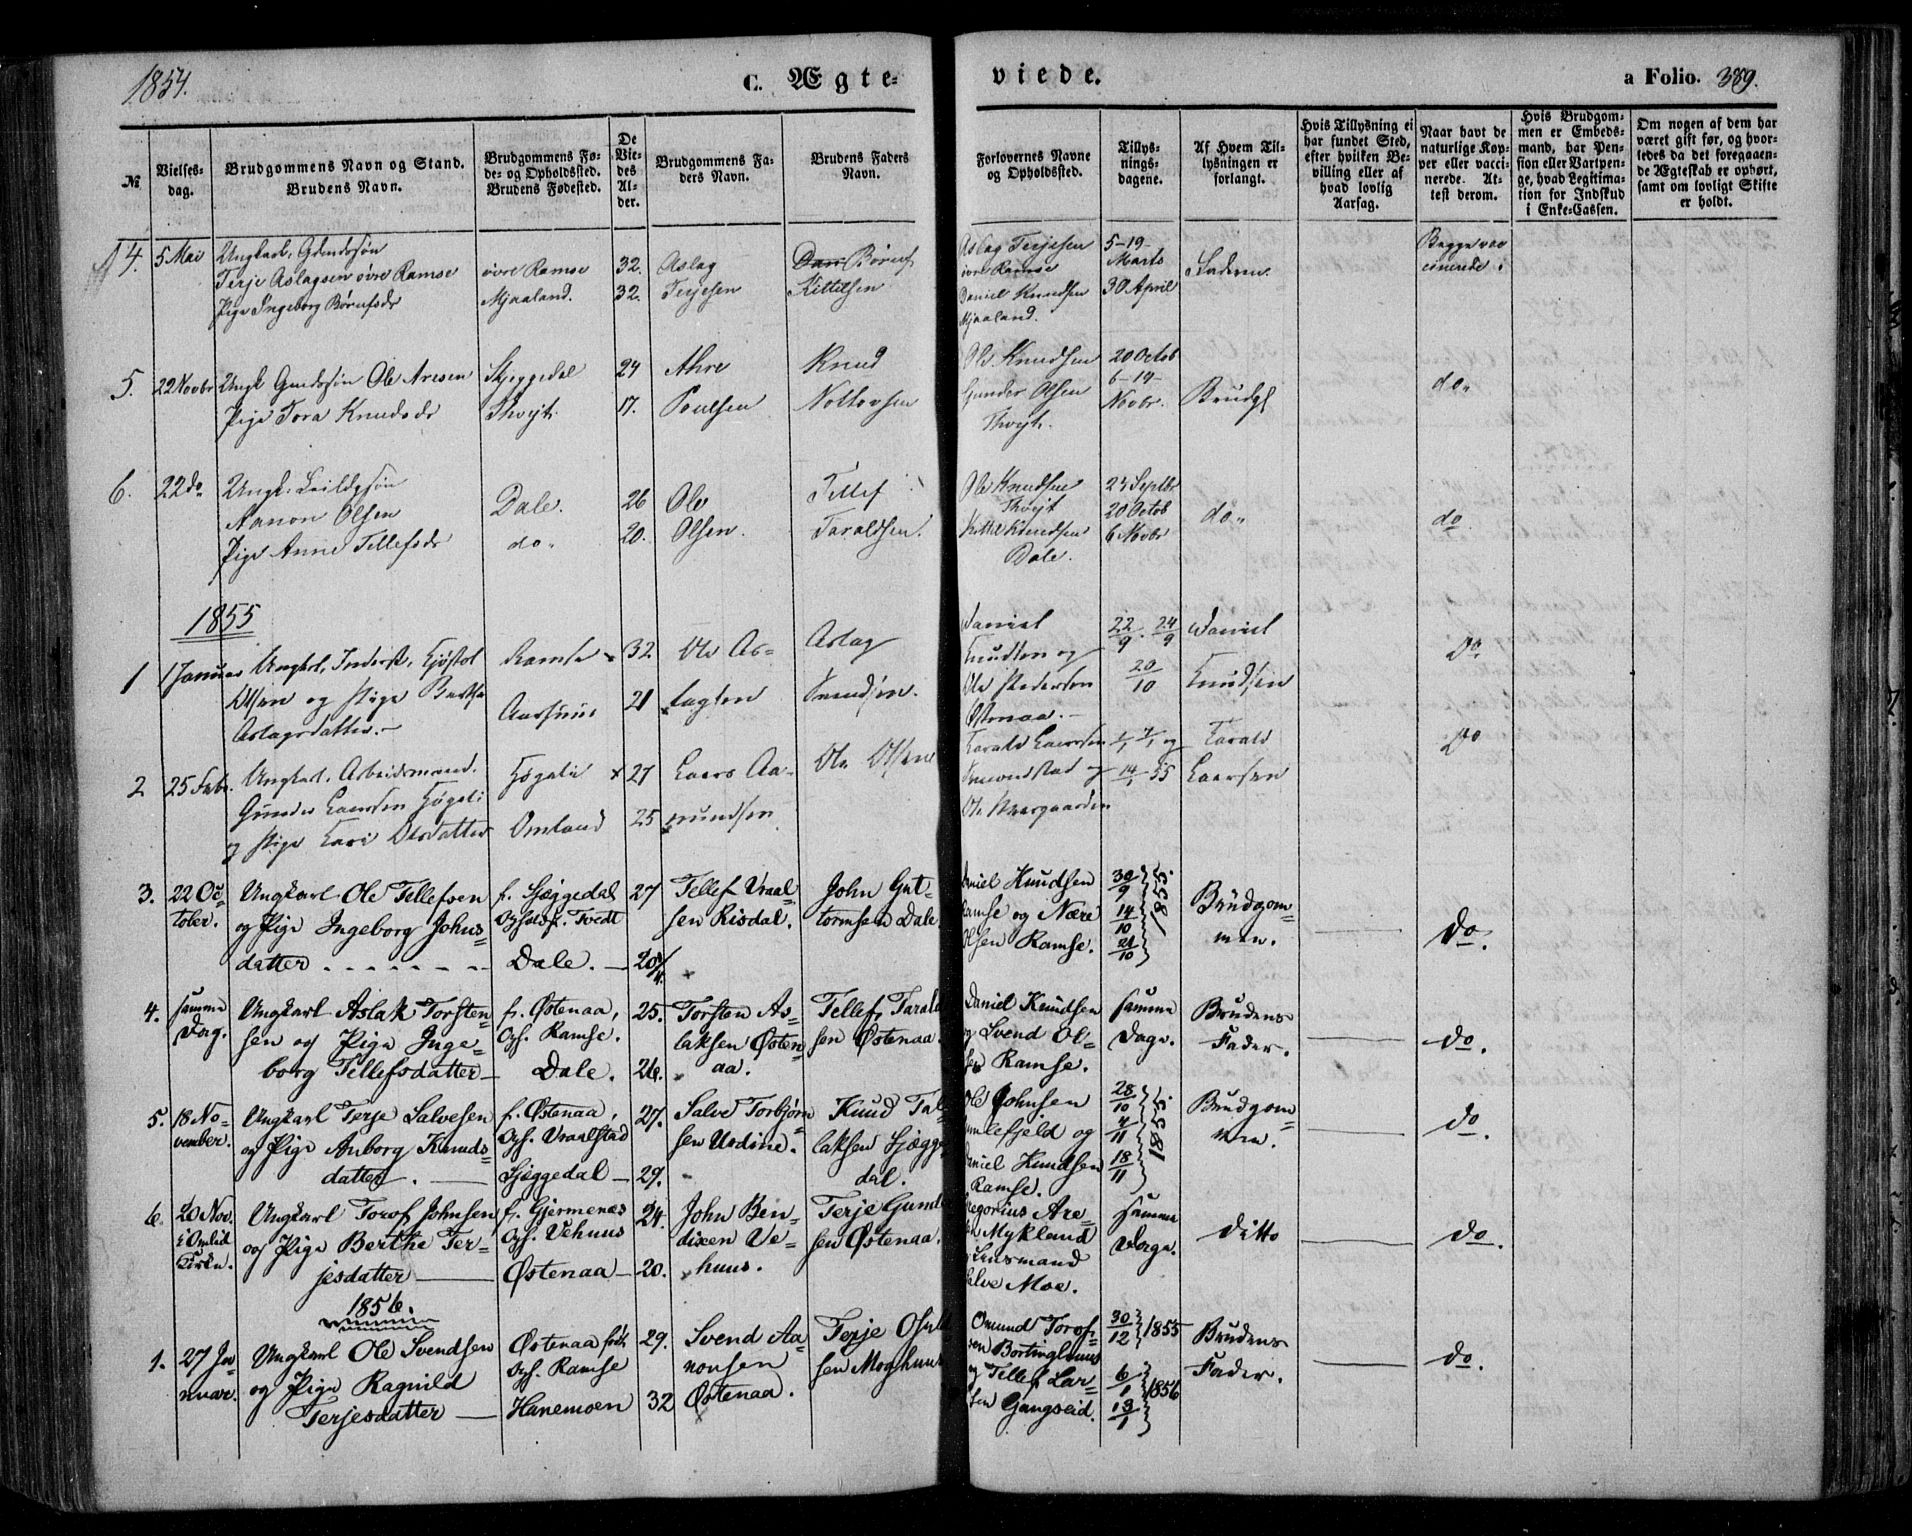 1854.
C. Ægte-
viede.
a Folio. 389.
№
Vielses-
dag.
Brudgommens Navn og Stand.
Brudens Navn.
Brudgommens Fø-
de- og Opholdssted.
Brudens Fødested.
De
Vie-
des
Al-
der.
Brudgommens Fa-
ders Navn.
Brudens Faders
Navn.
Forlovernes Navne
og Opholdssted.
Tillys-
nings-
dagene.
Af Hvem Til-
lysningen er
forlangt.
Hvis Tillysning ei
har fundet Sted,
efter hvilken Be-
villing eller af
hvad lovlig
Aarsag.
Naar havt de
naturlige Kop-
per eller vacci-
nerede. At-
test derom.
Hvis Brudgom-
men er Embeds-
mand, har Pen-
sion eller Vartpen-
ge, hvad Legitima-
tion for Indskud
i Enke-Cassen.
Om nogen af dem har
været gift før, og hvor-
ledes da det foregaaen-
de Ægteskab er ophørt,
samt om lovligt Skifte
er holdt.
4. 5 Mai Ungkarl, Gmdssøn
Terje Aslagsen øvre Ramse
Pige Ingeborg Børufsdr
øvre Ramse
Mjaaland.
32.
32.
Aslag
Terjesen
Børuf
Kittilsen
Aslag Terjesen
øvre Ramse
Daniel Knudsen
Mjaaland.
5-19-
Marts
30 April
Bagge vac
cinerede
5. 22 Novbr Ungk Gmdssøn Ole Aresen
Pige Tora Knudsdr
Skjeggedal
Thvejt
24
17.
Ahre
Poulsen
Knud
Ole Knudsen
Gunder Olsen
Thvejt.
20 Octob
6-19-
Novbr.
Brudg
do.
6. 22 do
Aanon Olsen
Pige Anne Tellefsdr
Dale.
do.
26
20.
Ole
Olsen.
Tellef
Taraldsen.
Ole Knudsen
Thvejt
Kittel Knudsen
Dale.
24 Septbr
20 Octob
6 Novbr
do.
do
1855
1 1 Januar Ungkarl, Inderst, Gjøstol
Olsen og Pige Berthe
Aslagsdatter.
Ramse
Aashuus
32
21
Ole As-
lagsen
Aslag
Svendsen.
Daniel
Knudsen og
Ole Pedersen
Østenaa.
22/9. 24/9
20/10
Daniel
Knudsen
Do.
2 25 Febr. Ungkarl, Arbeidsmand.
Gunder Laersen Høgeli
og Pige Kari Olsdatter
Høgeli
Omland
27
25
Laers Aa-
mundsen
Ole Olsen
Tarald Laersen
Simonstad og
7/1 og
14/1 55
Tarald
Laersen
Do
3. 22 Oc-
tober. Ungkarl Ole Tellefsen
og Pige Ingeborg Johns-
datter
f. Sjæggedal
Opholdsst. Tvedt
Dale.
27
20
Tellef Vraal-
sen Risdal.
John Gut-
tormsen Dale.
Daniel Knudsen
Ramse og Nære
Olsen Ramse.
30/9
14/10
21/10
1855.
Brudgom-
men.
Do.
4. samme
Dag. Ungkarl Aslak Torsten-
sen og Pige Inge-
borg Tellefsdatter
f. Østenaa,
Oph. Ramse.
Dale.
25.
26.
Torsten As-
laksen Østen-
aa.
Tellef Tarald-
sen Østenaa.
Daniel Knudsen
og Svend Ol-
sen Ramse.
samme
Dage.
Brudens
Fader.
do.
5. 18 No-
vember. Ungkarl Terje Salvesen
og Pige Anborg Knuds-
datter.
f. Østenaa,
Oph. Vraalstad
Sjæggedal
27.
29.
Salve Torbjørn-
sen Uldine.
Knud Tal-
laksen Sjægge-
dal.
Ole Johnsen
Daniel Knudsen
Ramse.
28/10
4/11
18/11
1855.
Brudgom-
men.
do.
6. 20 Nov.
i Omlid
Kirke. Ungkarl Torof Johnsen
og Pige Berthe Ter-
jesdatter
f. Gjermenes
Oph. Vehuus
Østenaa
24.
20.
John Ben-
dixen Ve-
huus.
Terje Gund-
sen Østenaa.
Gregorius Are-
sen Mykland
Lensmand
Salve Moe.
samme
Dage.
Ditto
do.
1856.
1. 27 Ja-
nuar. Ungkarl Ole Svendsen
og Pige Ragnild
Terjesdatter
Østenaa født
Oph. Ramse
Hanemoen
29.
32
Svend Aa-
nonsen
Østenaa.
Terje Osuld-
sen Moghuus
Omund Torof-
sen Bortinghuus
og Tellef Lar-
sen Gangseid.
30/12 1855
6/1
13/1 1856
Brudens
Fader.
do.